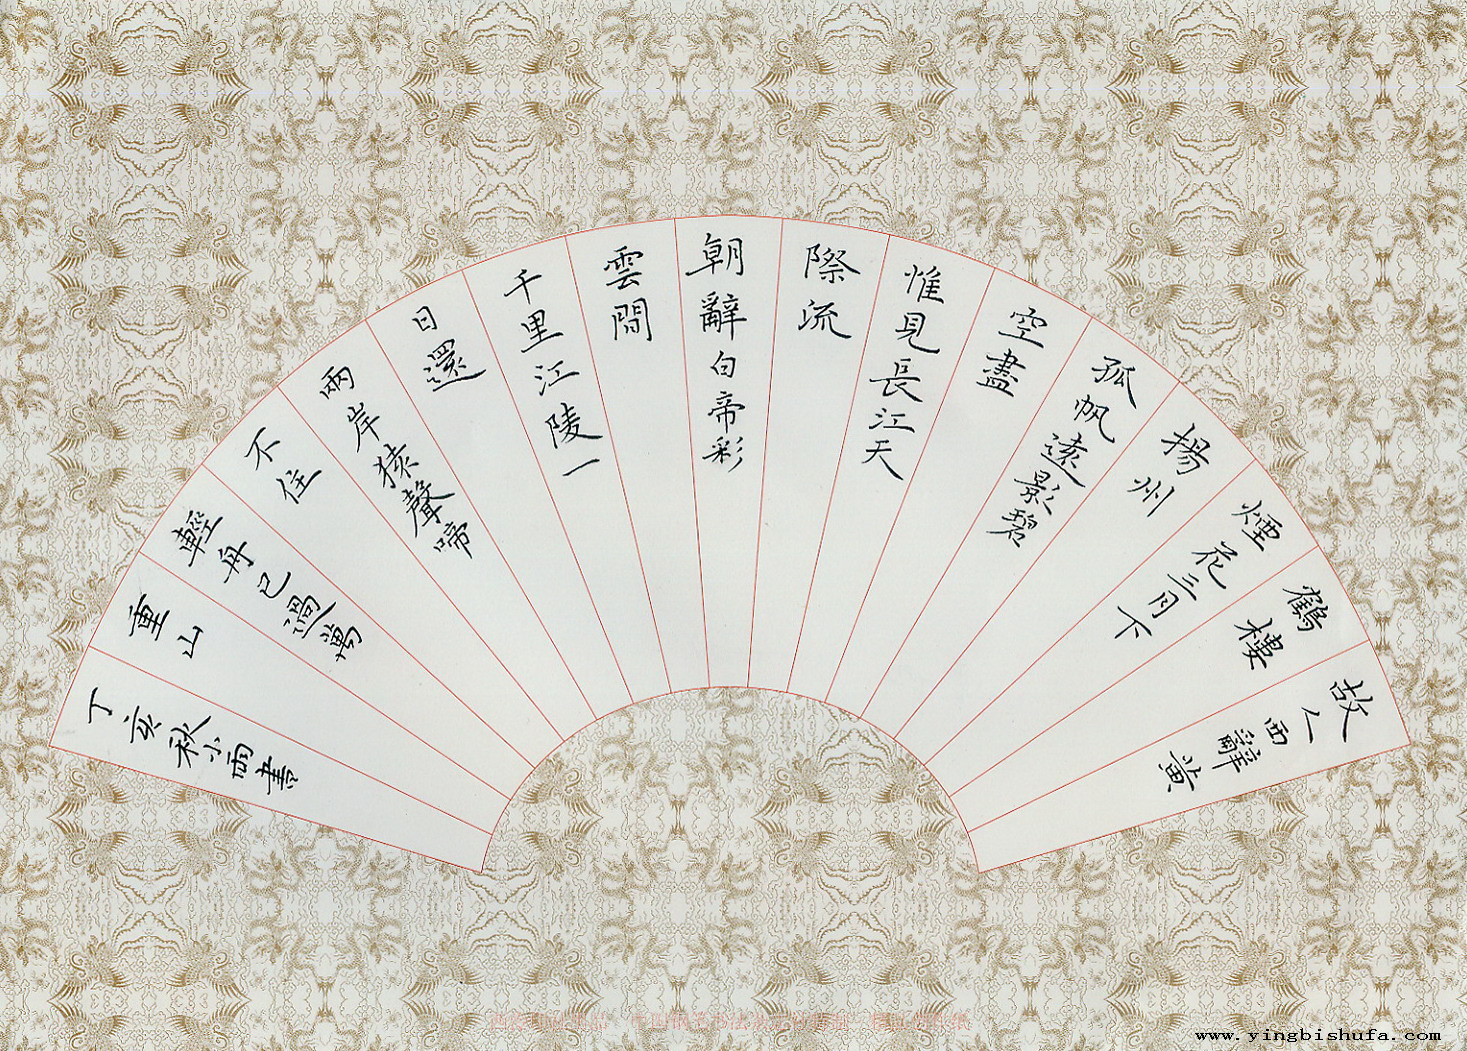 故人西辭黃
鶴樓
煙花三月下
揚州
孤帆遠影碧
空盡
惟見長江天
際流
朝辭白帝彩
雲間
千里江陵一
日還
兩岸猿聲啼
不住
輕舟已過萬
重山
丁亥秋小雨書
www.yingbishufa.com